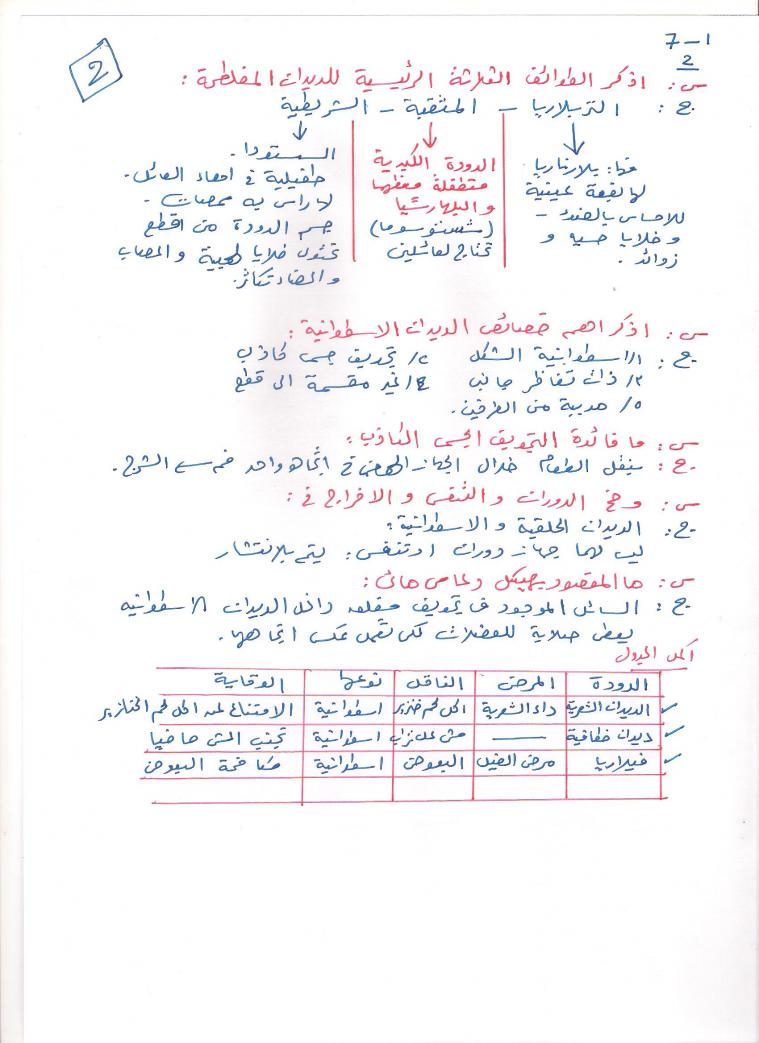 7-1
2
2
س: اذكر الطوائف الثلاثة الرئيسية للديدان المفلطحة:
ج: التربلاريا - المثقبة - الشريطية
منها: بلاناريا
لها بقعة عينية
للاحساس بالضوء -
وخلايا حسيه و
زوائد.
الدودة الكبدية
متطفلة معظمها
والبلهارسيا
(شستوسوما)
تحتاج لعائلين
السستودا.
طفيلية في امعاء العائل.
لها راس به ممصات.
جسم الدودة من اقطع
تحتوي خلايا عصبية
س: اذكر اهم خصائص الديدان الاسطوانية:
ج: 1/ اسطوانية الشكل 2/ تجويف جسمي كاذب
3/ ذات تناظر جانبي 4/ غير مقسمة الى قطع
5/ مدببة من الطرفين.
س: ما فائدة التجويف الجسمي الكاذب:
ج: ينقل الطعام خلال الجهاز الهضمي في اتجاه واحد فم الشرج.
س: وضح الدوران والتنفس والاخراج في:
ج: الديدان الحلقية والاسطوانية:
ليس لهما جهاز دوران او تنفس: يتم بالانتشار
س: ما المقصود بهيكل دعامي مائي:
ج: السائل الموجود في تجويف مقفله داخل الديدان الاسطوانيه
يعطي صلابة للعضلات لكي تعمل عكس اتجاهها.
اكمل الجدول
الدودة المرض الناقل نوعها الوقاية
الديدان الشعرية داء الشعرية اكل لحم خنزير اسطوانية الامتناع عن اكل لحم الخنازير
ديدان خطافية — مشي على تراب اسطوانية تجنب المشي حافيا
فيلاريا مرض الفيل البعوض اسطوانية مكافحة البعوض